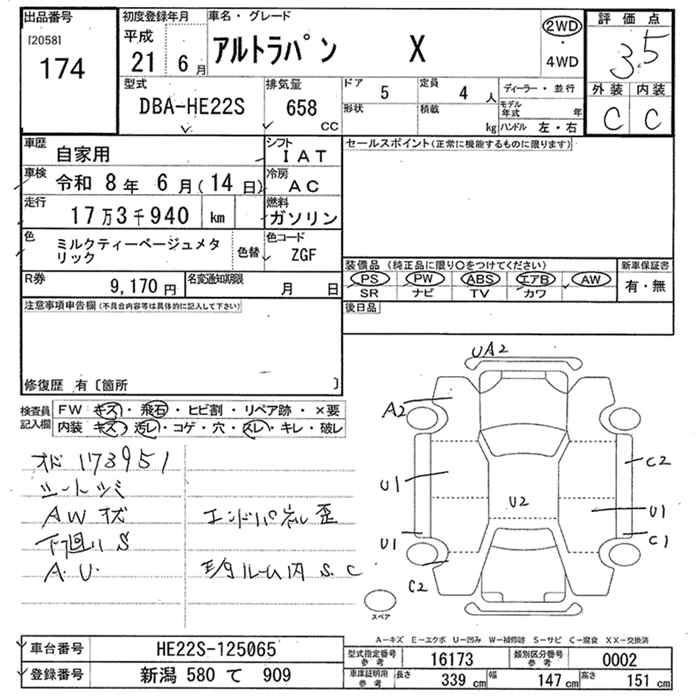 出品番号
[2058]
174
初度登録年月
平成
21 年 6 月
車名・グレード
アルトラパン X
2WD
・
4WD
評価点
3.5
外装 内装
C C
型式
DBA-HE22S
排気量
658 CC
ドア 5
定員 4 人
形状
積載 kg
ディーラー・並行
モデル年式 年
ハンドル 左・右
車歴
自家用
シフト
IAT
車検 令和 8年 6月(14日)
冷房
AC
走行
17万3千940 km
燃料
ガソリン
色
ミルクティーベージュメタリック
色替
色コード
ZGF
R券 9,170 円
名変通知期限 月 日
セールスポイント(正常に機能するものに限ります)
装備品 (純正品に限り○をつけてください)
新車保証書
PS PW ABS エアB AW
有・無
SR ナビ TV カワ
後日品
注意事項申告欄(不具合内容等は具体的に記入して下さい)
修復歴 有〔箇所 〕
検査員記入欄
FW キズ・飛石・ヒビ割・リペア跡・×要
内装 キズ・汚レ・コゲ・穴・スレ・キレ・破レ
173951
シートシミ
AW状
下廻りS
A.U.
エンドパネル歪
S.C
UA2
A2
U1
U1
C2
U2
C2
U1
C1
スペア
A-キズ E-エクボ U-凹み W-補修跡 S-サビ C-腐食 XX-交換済
車台番号 HE22S-125065
登録番号 新潟 580 て 909
型式指定番号 参考 16173
類別区分番号 参考 0002
車庫証明用 参考 長さ 339 cm 幅 147 cm 高さ 151 cm